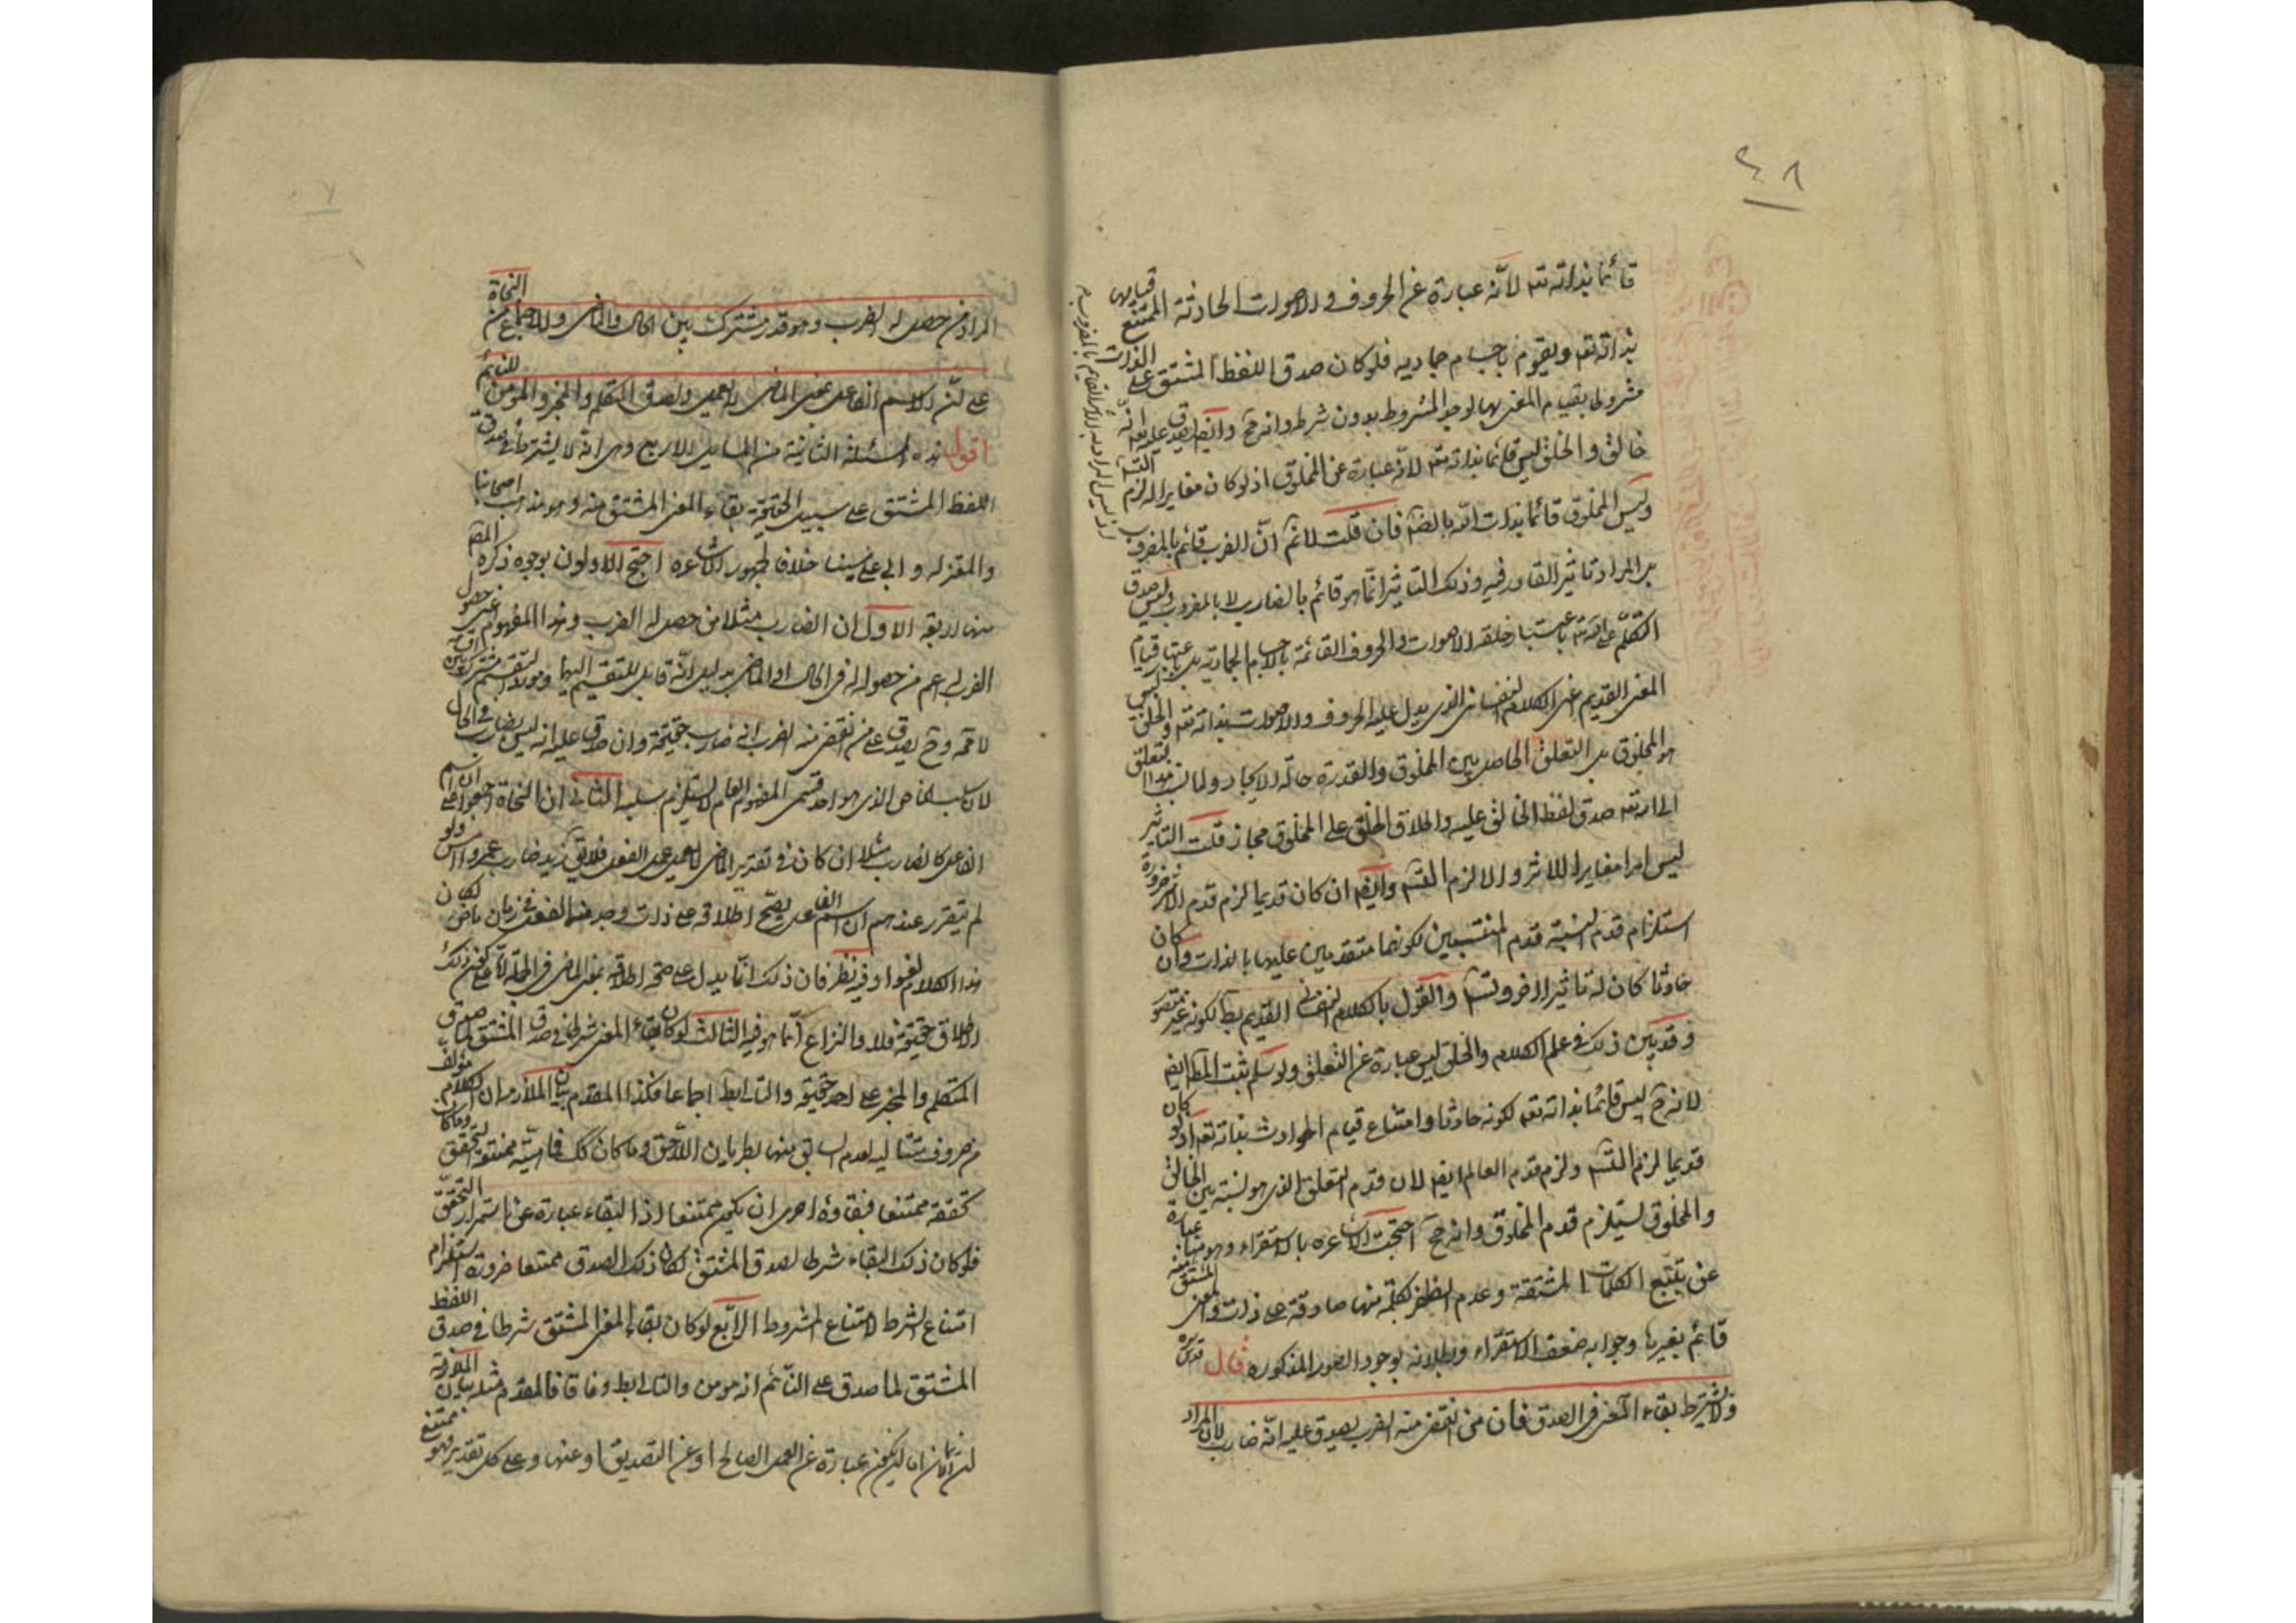 ٤٨
قائما بذاته تعه لانّه عبارة عن الحروف والاصوات الحادثة الممتنع قيامها
بذاته تعه ويقوم باجسام جماديه فلو كان صدق اللفظ المشتق على الذات
مشروطا بقيام المعنى بها لوجد المشروط بدون شرطه وانه مح وايضا يصدق عليه تعه انه
خالق والخلق ليس قائما بذاته تعه لانه عبارة عن المخلوق اذ لو كان مغايرا له لزم التسـ
وليس المخلوق قائما بذات الله بالضرّ فان قلت لانم انّ الضرب قائم بالمضروب
بل المراد تاثير القادر فيه وذلك التاثير انما هو قائم بالضارب لا بالمضروب وليس صدق
المتكلّم على الله تعه باعتبار خلقه الاصوات والحروف القائمة بالاجسام الجمادية بل باعتبار قيام
المعنى القديم اعنى الكلام النفسانى الذى يدل عليه الحروف والاصوات بذاته تعه والخلق ليس
هو المخلوق بل التعلق الحاصل بين المخلوق والقدرة حالة الايجاد ولما نسب هذا التعلق
الى الله تعه صدق لفظ الخالق عليه واطلاق الخلق على المخلوق مجاز قلت التاثير
ليس امرا مغايرا للاثر والا لزم التسـ وايضا ان كان قديما لزم قدم الاثر ضرورة
استلزام قدم النسبة قدم المنتسبين لكونهما متقدمين عليها بالذات وان كان
حادثا كان له تاثير اخر وتسـ والقول بالكلام النفسانى القديم بط لكونه غير متصور
وقد بين ذلك فى علم الكلام والخلق ليس عبارة عن التعلق ولو سلم ثبت المط ايضا
لانه ح ليس قائما بذاته تعه لكونه حادثا وامتناع قيام الحوادث بذاته تعه اذ لو كان
قديما لزم التسـ ولزم قدم العالم ايضا لان قدم التعلق الذى هو نسبة بين الخالق
والمخلوق يستلزم قدم المخلوق وانه مح احتجت الاشاعره بالاستقراء وهو هنا عبارة
عن تتبع الكلمات المشتقة وعدم الظفر بكلمة منها صادقة على ذات والمعنى المشتق منه
قائم بغيرها وجوابه ضعف الاستقراء وبطلانه بوجود الصور المذكوره قال قدس سره
ولا يشترط بقاء المعنى فى الصدق فان من انقضى منه الضرب يصدق عليه انّه ضارب لان المراد
اذ ليس المراد به الاثر القائم بالمضروب
المراد من حصل له الضرب وهو قدر مشترك بين الحال والماضى ولاجماع النحاة
على انّ الاسم الفاعل بمعنى الماضى لا يعمل ولصدق المتكلم والمخبر والمؤمن للنائم
اقول هذه المسئلة الثانية من المسايل الاربع وهى انّه لا يشترط فى صدق
اللفظ المشتق على سبيل الحقيقة بقاء المعنى المشتق منه وهو مذهب اصحابنا
والمعتزله و ابى على سينا خلافا لجمهور الاشاعره احتج الاولون بوجوه ذكره المصّ
منها اربعة الاول ان الضارب مثلا من حصل له الضرب وهذا المفهوم اعنى حصول
الضرب له اعم من حصوله له فى الحال او الماضى بدليل انّه قابل للتقسيم اليهما ومورد القسمة مشترك بين اقسامه
لا محه وح يصدق على من انقضى منه الضرب انه ضارب حقيقة وان صدق عليه انه ليس بضارب فى الحال
لان سلب الخاص الذى هو احد قسمى المفهوم العام لا يستلزم سلبه الثانى ان النحاة اجمعوا على ان اسم
الفاعل كالضارب مثلا ان كان فى تقدير الماضى لا يعمل عمل الفعل فلا يقال زيد ضارب عمروا امس ولو
لم يتقرر عندهم ان اسم الفاعل يصّح اطلاقه على ذات وجد منها الفعل فى زمان ماض لكان
هذا الكلام لغوا وفيه نظر فان ذلك انّما يدل على صحة اطلاقه بمعنى الماضى فى الجملة امّا على كون ذلك
الاطلاق حقيقة فلا والنزاع انّما هو فيه الثالث لو كان بقاء المعنى شرطا فى صدق المشتق لما صدق
المتكلم والمخبر على احد حقيقة والتالى بط اجماعا فكذا المقدم بيان الملازمة ان الكلام مؤلف
من حروف متتالية ينعدم السابق منها بطريان اللاّحق وما كان كك فاهيّته ممتنعة التحقق وما كان
تحققه ممتنعا فبقاؤه احرى ان يكون ممتنعا اذا البقاء عبارة عن استمرار التحقق
فلو كان ذلك البقاء شرطا لصدق المشتق لكان ذلك الصدق ممتنعا ضرورة استلزام
امتناع الشرط لامتناع المشروط الرّابع لو كان بقاء المعنى المشتق شرطا فى صدق اللفظ
المشتق لما صدق على النّائم انه مومن والتالى بط وفاقا فالمقدم مثله بيان الملازمة
ان الايمان اما ان يكون عبارة عن العمل الصالح او عن التصديق او عنهما وعلى كل تقدير فهو ممتنع